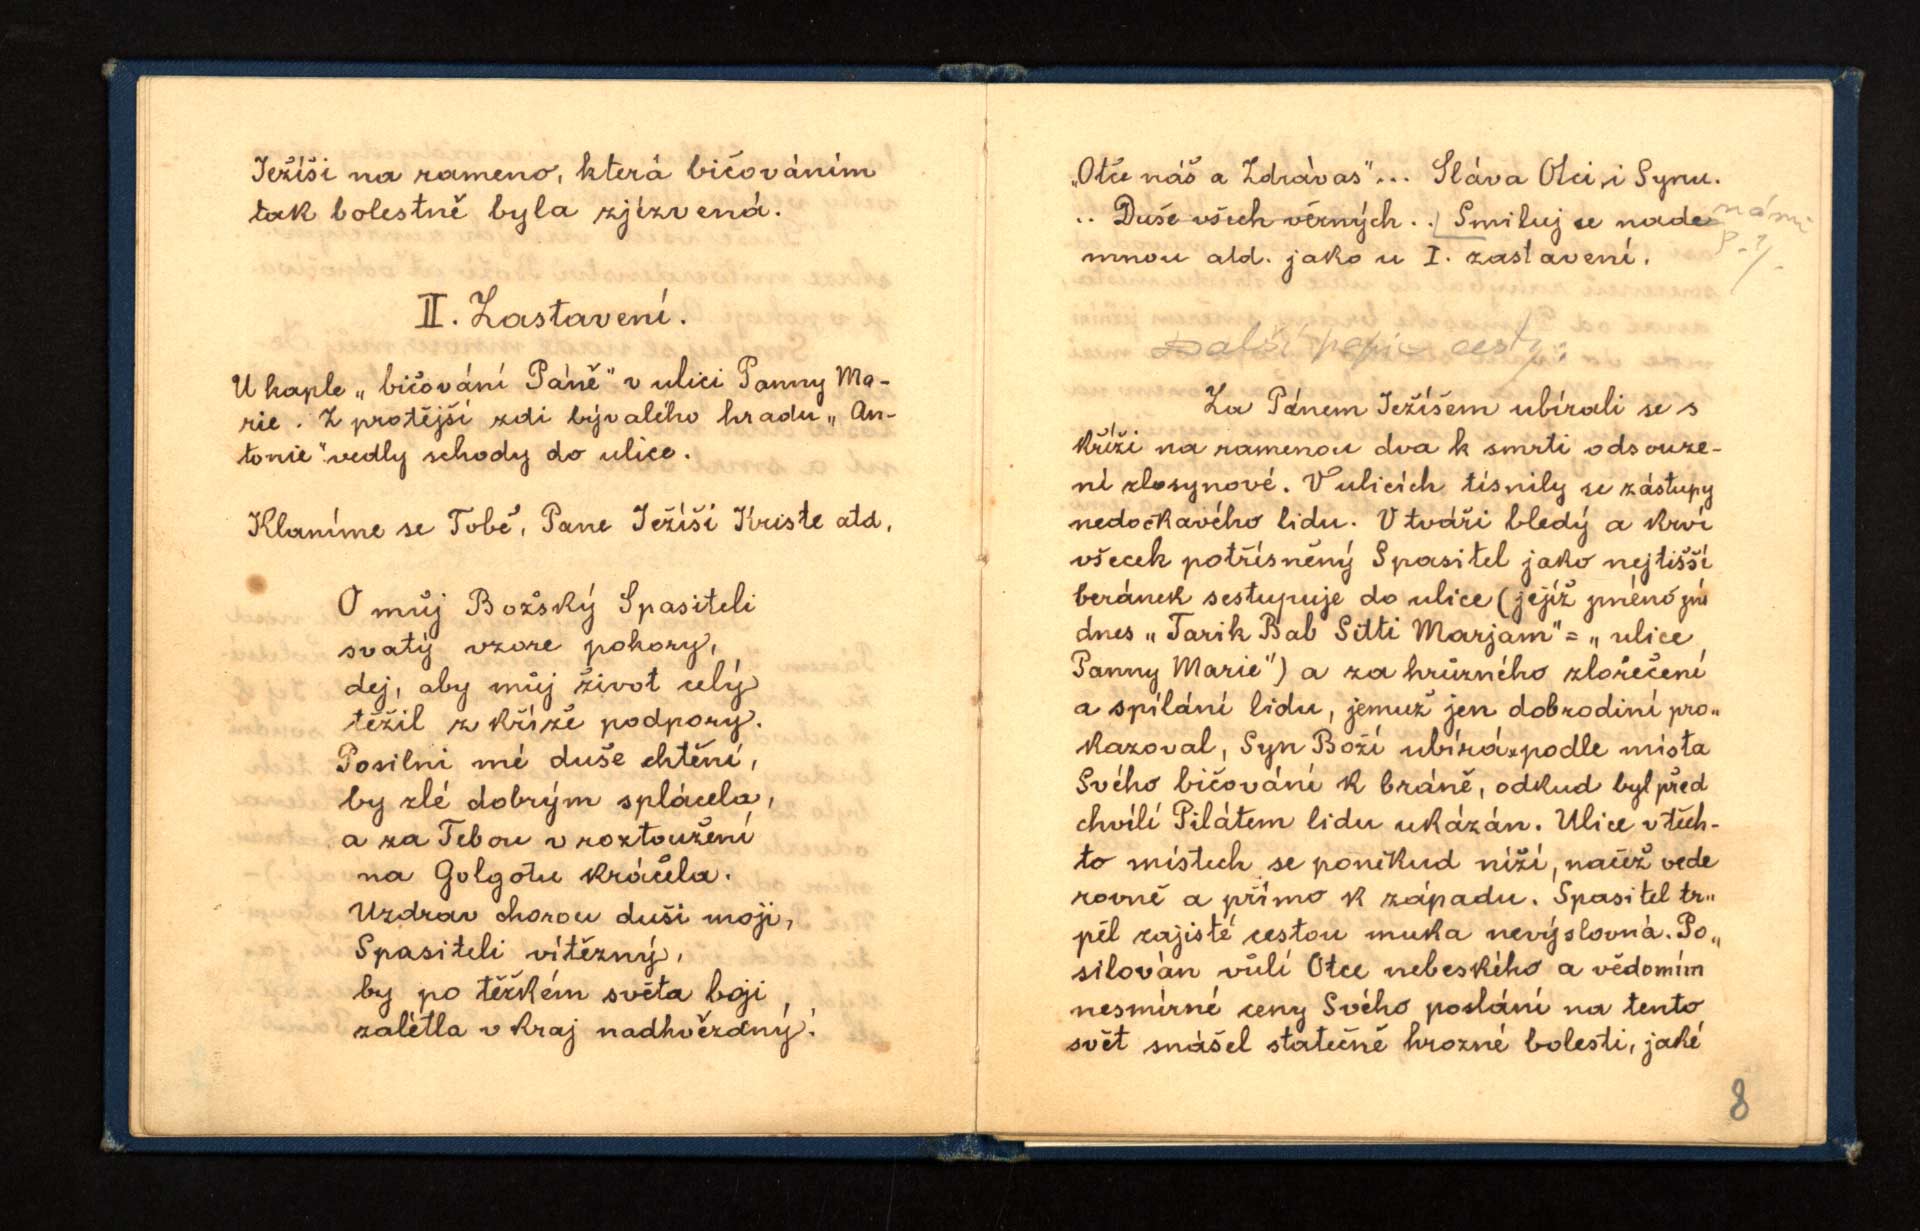 Ježíši na rameno, která bičováním
tak bolestně byla zjízvená.
II. Zastavení.
U kaple „bičování Páně" v ulici Panny Ma-
rie. Z protější zdi bývalého hradu „An-
tonie" vedly schody do ulice.
Klaníme se Tobě, Pane Ježíši Kriste atd.
O můj Božský Spasiteli
svatý vzore pokory,
dej, aby můj život celý
těžil z kříže podpory.
Posilni mé duše chtění,
by zlé dobrým splácela,
a za Tebou v roztoužení
na Golgotu kráčela.
Uzdrav chorou duši moji,
Spasiteli vítězný,
by po těžkém světa boji,
zalétla v kraj nadhvězdný!
„Otče náš a Zdrávas"... Sláva Otci, i Synu.
.. Duše všech věrných .. Smiluj se nade námi
mnou atd. jako u I. zastavení.
Další popis cesty:
Za Pánem Ježíšem ubírali se s
kříži na ramenou dva k smrti odsouze-
ní zlosynové. V ulicích tísnily se zástupy
nedočkavého lidu. V tváři bledý a krví
všecek potřísněný Spasitel jako nejtišší
beránek sestupuje do ulice (jejíž jméno zní
dnes „Tarik Bab Sitti Marjam" = „ulice
Panny Marie") a za hrůzného zlořečení
a spílání lidu, jemuž jen dobrodiní pro„
kazoval, Syn Boží ubírá podle místa
Svého bičování k bráně, odkud byl před
chvílí Pilátem lidu ukázán. Ulice v těch-
to místech se poněkud níží, načež vede
rovně a přímo k západu. Spasitel tr„
pěl zajisté cestou muka nevýslovná. Po„
silován vůlí Otce nebeského a vědomím
nesmírné ceny Svého poslání na tento
svět snášel statečně hrozné bolesti, jaké
8